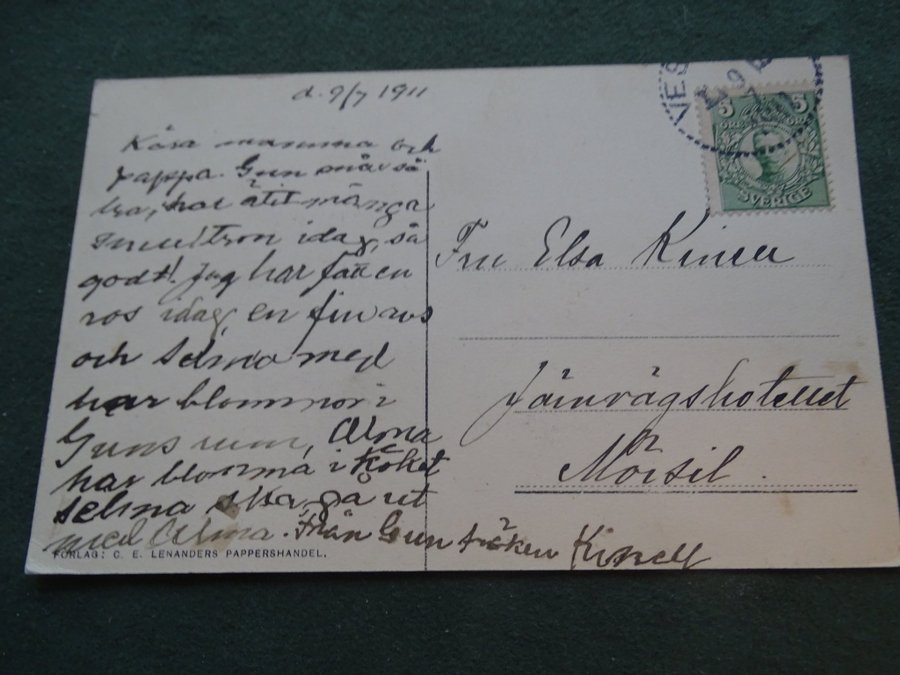 d. 9/7 1911
Kära mamma och
pappa. Gun mår så
bra, har ätit många
smultron idag, så
godt! Jag har fått en
ros idag, en fin ros
och Selma med
har blommor i
Guns rum, Alma
har blomma i köket
Selma ska gå ut
med Alma. Från Gun fröken Kinell
FÖRLAG: C. E. LENANDERS PAPPERSHANDEL.
5 5
SVERIGE
Fru Elsa Kinell
Järnvägshotellet
Mörsil.